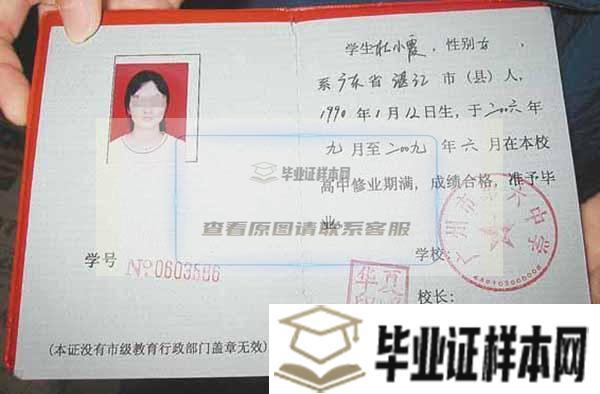 学生杜小霞，性别女，
系广东省湛江市（县）人，
1990年1月12日生，于二〇〇六年
九月至二〇〇九年六月在本校
高中修业期满，成绩合格，准予毕
业
学校：
校长：
学号 No 0603586
（本证没有市级教育行政部门盖章无效）
毕业证样本网
查看原图请联系客服
广州市 六中学
华 夏
印
毕业证样本网